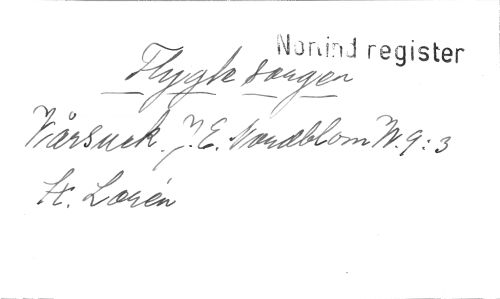 Nonind register
Flygle sorgen
Vårsuck. J. E. Nordblom N. 9:3
H. Lorén